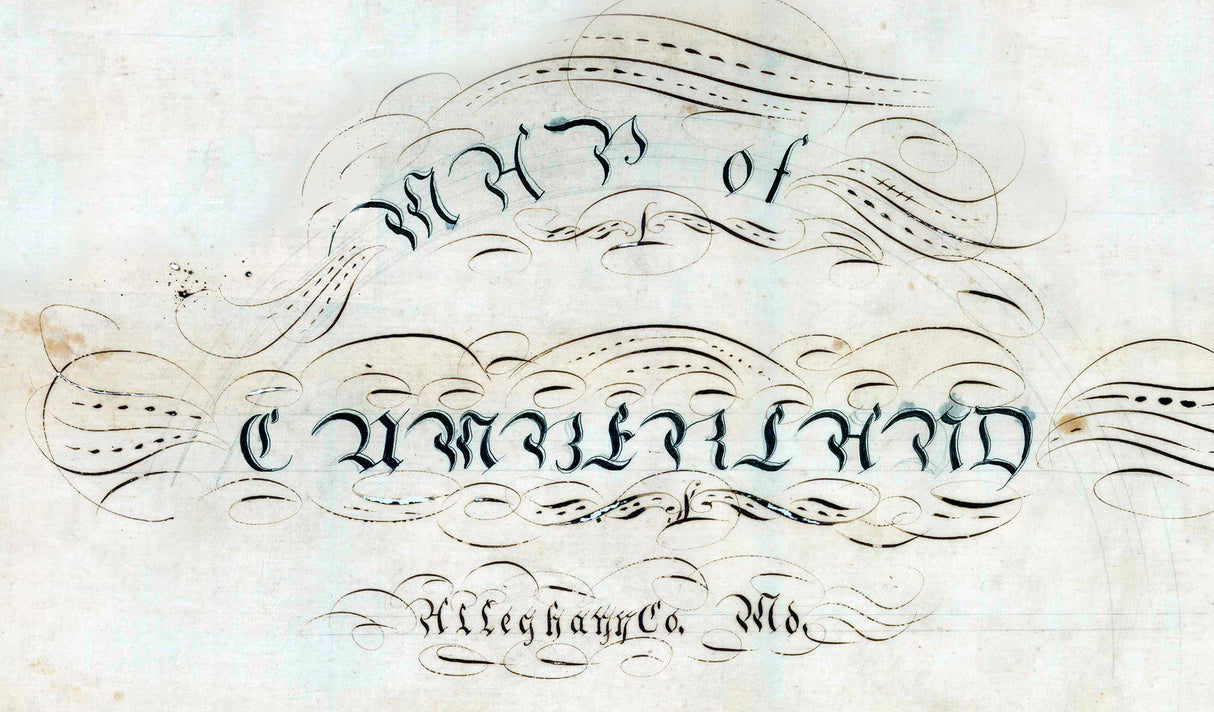 MAP of
CUMBERLAND
Alleghany Co. Md.